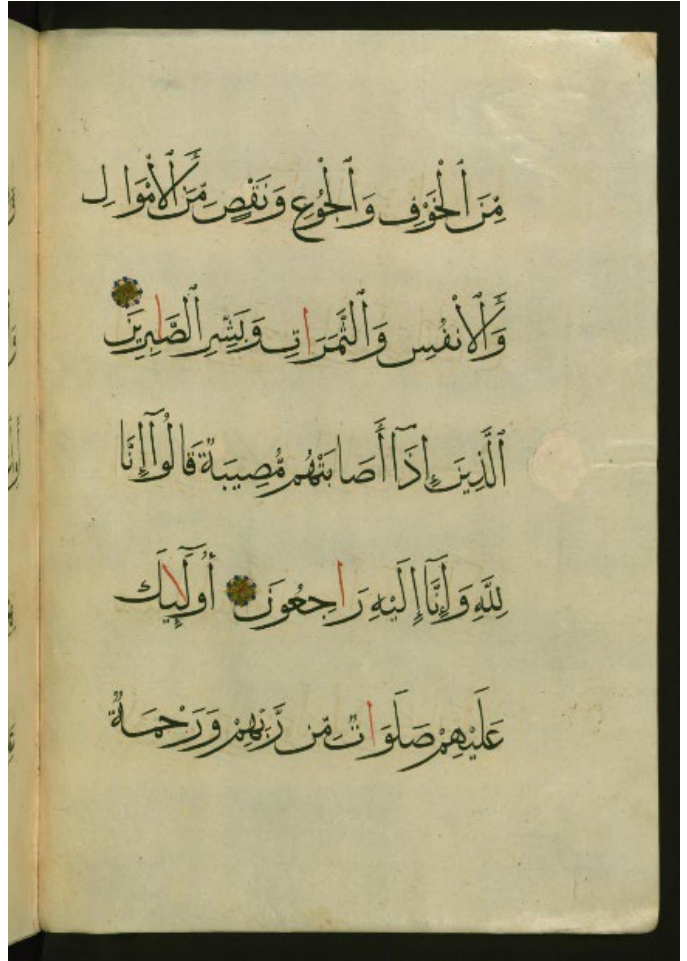 مِّنَ ٱلْخَوْفِ وَٱلْجُوعِ وَنَقْصٍ مِّنَ ٱلْأَمْوَالِ
وَٱلْأَنْفُسِ وَٱلثَّمَرَاتِ وَبَشِّرِ ٱلصَّابِرِينَ
ٱلَّذِينَ إِذَآ أَصَابَتْهُم مُّصِيبَةٌ قَالُوٓا۟ إِنَّا
لِلَّهِ وَإِنَّآ إِلَيْهِ رَاجِعُونَ أُولَٰٓئِكَ
عَلَيْهِمْ صَلَوَاتٌ مِّن رَّبِّهِمْ وَرَحْمَةٌ